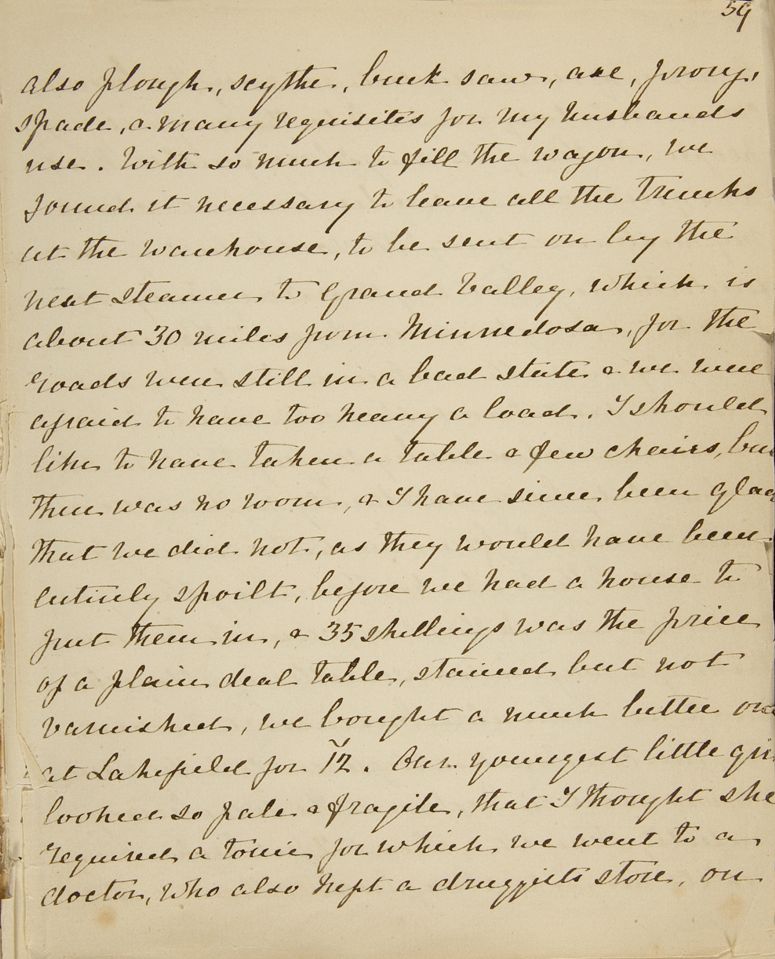 59
also plough, scythe, buck saw, axe, prong,
spade, & many requisites for my husbands
use. With so much to fill the wagon, we
found it necessary to leave all the trunks
at the warehouse, to be sent on by the
next steamer to Grand Valley, which is
about 30 miles from Minnedosa, for the
roads were still in a bad state & we were
afraid to have too heavy a load. I should
like to have taken a table & few chairs, but
there was no room, & I have since been glad
that we did not, as they would have been
entirely spoilt, before we had a house to
put them in, & 35 shillings was the price
of a plain deal table, stained but not
varnished, we bought a much better one
at Lakefield for 12. Our youngest little girl
looked so pale & fragile, that I thought she
required a tonic for which we went to a
doctor, who also kept a druggists store, on